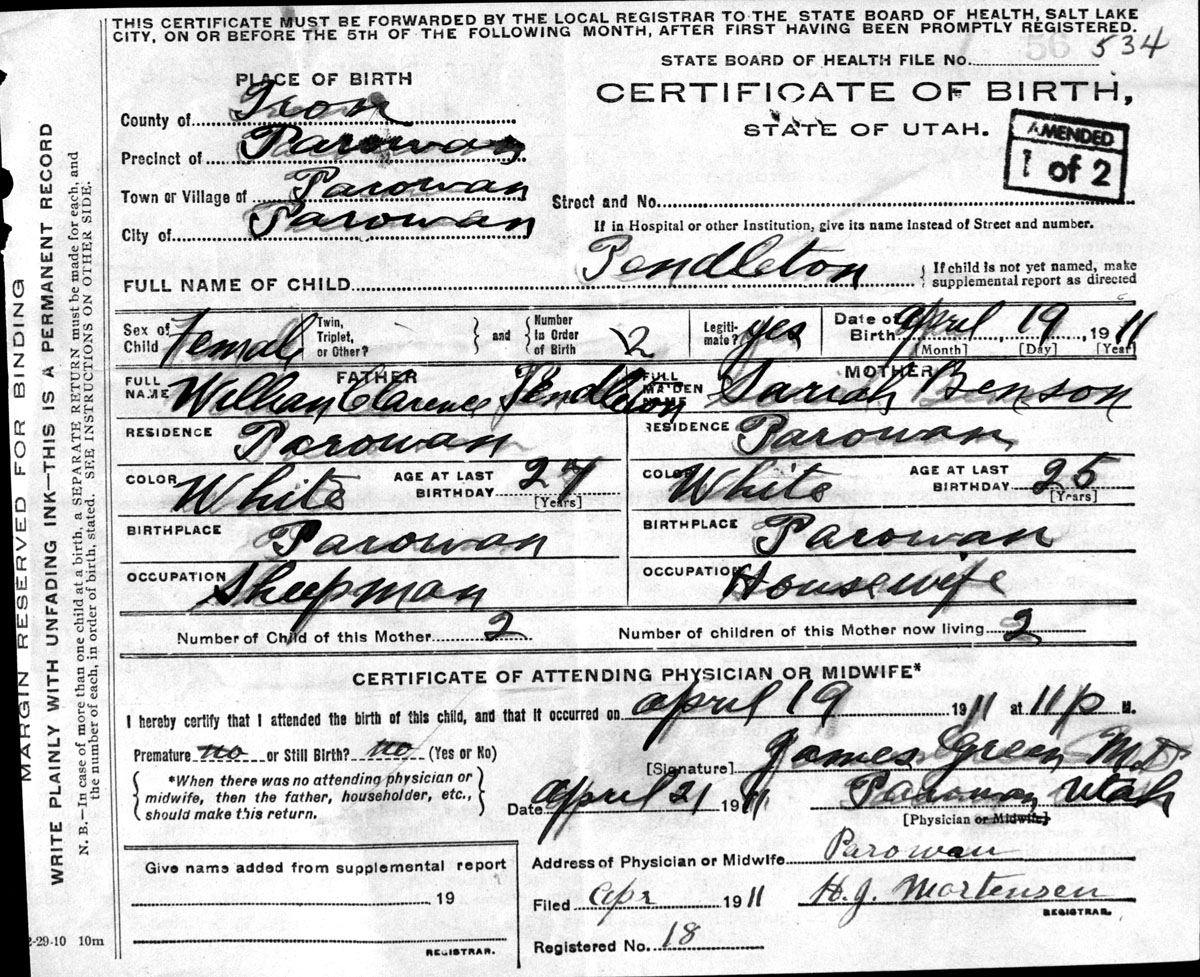 THIS CERTIFICATE MUST BE FORWARDED BY THE LOCAL REGISTRAR TO THE STATE BOARD OF HEALTH, SALT LAKE
CITY, ON OR BEFORE THE 5TH OF THE FOLLOWING MONTH, AFTER FIRST HAVING BEEN PROMPTLY REGISTERED.
STATE BOARD OF HEALTH FILE No. 56 534
PLACE OF BIRTH
CERTIFICATE OF BIRTH,
STATE OF UTAH.
AMENDED
1 of 2
County of Iron
Precinct of Parowan
Town or Village of Parowan
Street and No.
City of Parowan
If in Hospital or other Institution, give its name instead of Street and number.
FULL NAME OF CHILD Pendleton
{ If child is not yet named, make
supplemental report as directed
Sex of Child Female
Twin, Triplet, or Other?
} and { Number in Order of Birth 2
Legiti-mate? yes
Date of Birth April 19, 1911
[Month] [Day] [Year]
FATHER
FULL NAME William Clarence Pendleton
MOTHER
FULL MAIDEN NAME Sariah Benson
RESIDENCE Parowan
RESIDENCE Parowan
COLOR White AGE AT LAST BIRTHDAY 27 [Years]
COLOR White AGE AT LAST BIRTHDAY 25 [Years]
BIRTHPLACE Parowan
BIRTHPLACE Parowan
OCCUPATION Sheepman
OCCUPATION Housewife
Number of Child of this Mother 2
Number of children of this Mother now living 2
CERTIFICATE OF ATTENDING PHYSICIAN OR MIDWIFE*
I hereby certify that I attended the birth of this child, and that it occurred on april 19 1911 at 11 p M.
Premature no or Still Birth? no (Yes or No)
{ *When there was no attending physician or
midwife, then the father, householder, etc.,
should make this return. }
[Signature] James Green M.D
Date April 21 1911 Parowan Utah
[Physician or Midwife]
Give name added from supplemental report
19
REGISTRAR.
Address of Physician or Midwife Parowan
Filed apr 1911 H. J. Mortensen
REGISTRAR.
Registered No. 18
2-29-10 10m
MARGIN RESERVED FOR BINDING
WRITE PLAINLY WITH UNFADING INK—THIS IS A PERMANENT RECORD
N. B.—In case of more than one child at a birth, a SEPARATE RETURN must be made for each, and
the number of each, in order of birth, stated. SEE INSTRUCTIONS ON OTHER SIDE.